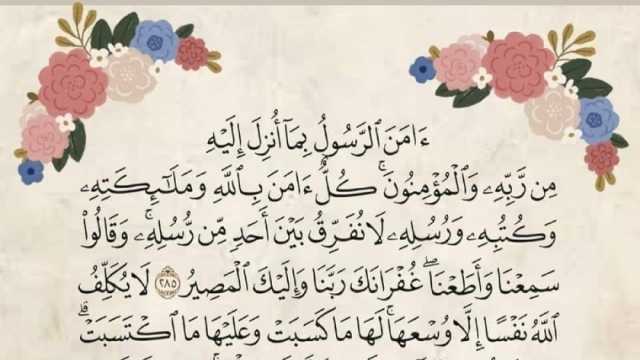 ءَامَنَ ٱلرَّسُولُ بِمَآ أُنزِلَ إِلَيْهِ
مِن رَّبِّهِۦ وَٱلْمُؤْمِنُونَ ۚ كُلٌّ ءَامَنَ بِٱللَّهِ وَمَلَـٰٓئِكَتِهِۦ
وَكُتُبِهِۦ وَرُسُلِهِۦ لَا نُفَرِّقُ بَيْنَ أَحَدٍ مِّن رُّسُلِهِۦ ۚ وَقَالُوا۟
سَمِعْنَا وَأَطَعْنَا ۖ غُفْرَانَكَ رَبَّنَا وَإِلَيْكَ ٱلْمَصِيرُ ٢٨٥ لَا يُكَلِّفُ
ٱللَّهُ نَفْسًا إِلَّا وُسْعَهَا ۚ لَهَا مَا كَسَبَتْ وَعَلَيْهَا مَا ٱكْتَسَبَتْ ۗ